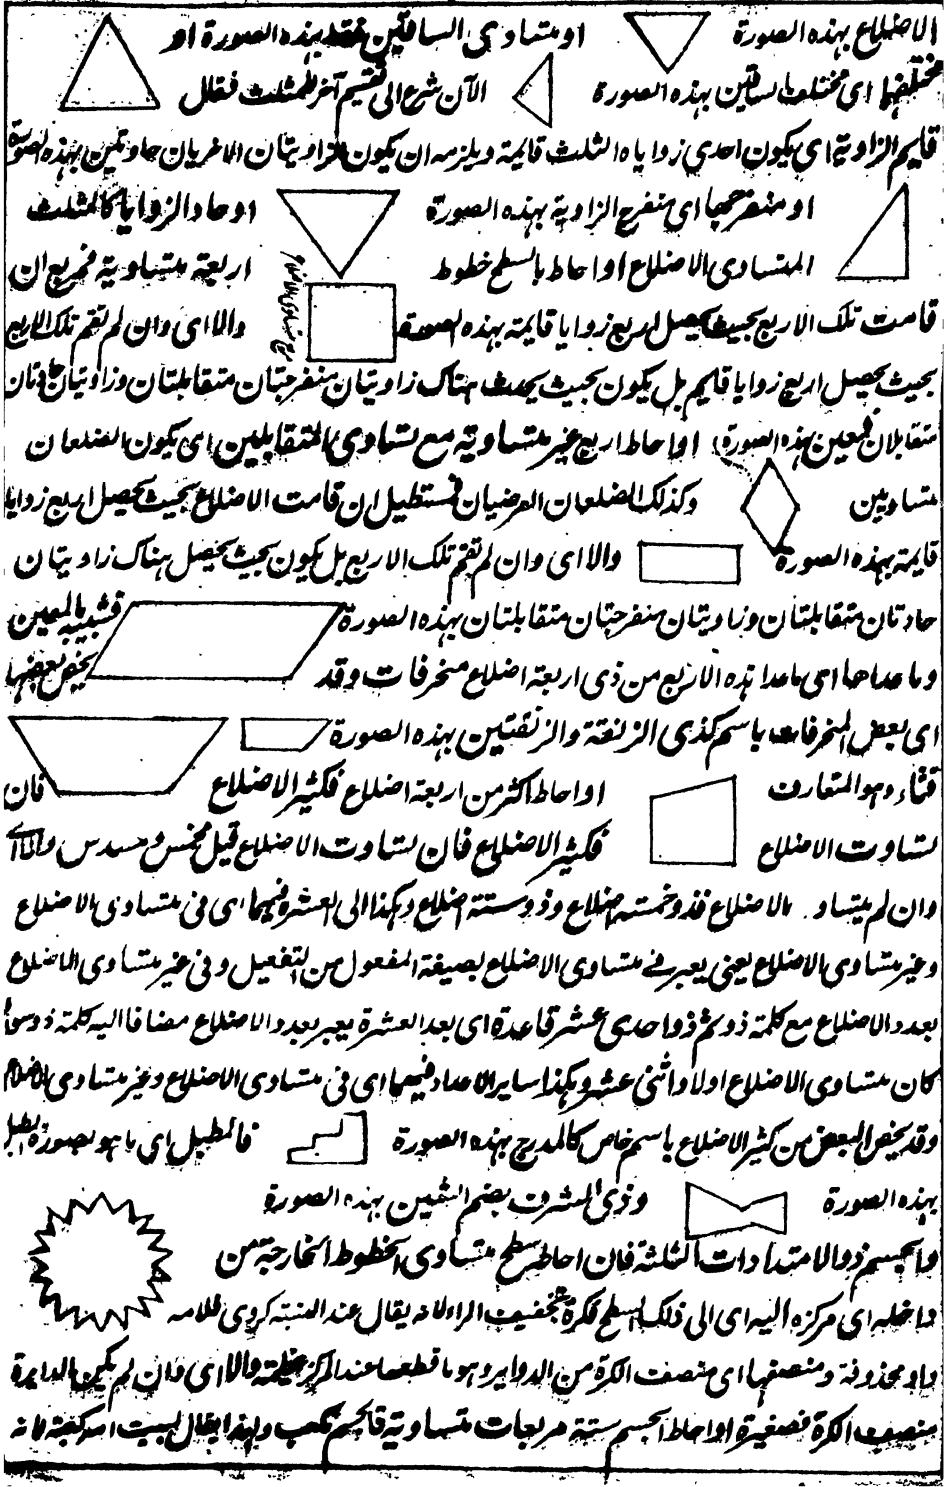 الاضلاع بهذه الصورة او متساوی الساقين فقط بهذه الصورة او
مختلفها ای مختلف الساقين بهذه الصورة الآن شرع الی تقسيم آخر للمثلث فقال
قايم الزاوية ای يكون احدی زواياه الثلث قايمة ويلزمه ان يكون الزاويتان الاخريان حادتين بهذه الصورة
او منفرجها ای منفرج الزاوية بهذه الصورة او حاد الزوايا كالمثلث
المتساوی الاضلاع او احاط بالسطح خطوط اربعة متساوية فمربع ان
قامت تلك الاربع بحيث يحصل اربع زوايا قايمة بهذه الصورة والا ای وان لم تقم تلك الاربع
بحيث يحصل اربع زوايا قايم بل يكون بحيث يحدث هناك زاويتان منفرجتان متقابلتان وزاويتان حادتان
متقابلان فمعين بهذه الصورة او احاط اربع غير متساوية مع تساوی المتقابلين ای يكون الضلعان
متساويين وكذلك الضلعان العرضيان فمستطيل ان قامت الاضلاع بحيث يحصل اربع زوايا
قايمة بهذه الصورة والا ای وان لم تقم تلك الاربع بل يكون بحيث يحصل هناك زاويتان
حادتان متقابلتان وزاويتان منفرجتان متقابلتان بهذه الصورة فشبيه بالمعين
وما عداها ای ما عدا هذه الاربع من ذی اربعة اضلاع منحرفات وقد يخص بعضها
ای بعض المنحرفات باسم كذی الزنقة والزنقتين بهذه الصورة
قثاء وهو المتعارف او احاط اكثر من اربعة اضلاع فكثير الاضلاع فان
تساوت الاضلاع فكثير الاضلاع فان تساوت الاضلاع قيل مخمس ومسدس والا ای
وان لم يتساو الاضلاع فذو خمسة اضلاع وذو ستة اضلاع وهكذا الی العشرة فيهما ای فی متساوی الاضلاع
وغير متساوی الاضلاع يعنی يعبر فے متساوی الاضلاع بصيغة المفعول من التفعيل وفی غير متساوی الاضلاع
بعدد الاضلاع مع كلمة ذو ثم ذو احدی عشر قاعدة ای بعد العشرة يعبر بعدد الاضلاع مضافا اليه كلمة ذو سواء
كان متساوی الاضلاع اولا واثنی عشر وهكذا ساير الاعداد فيهما ای فی متساوی الاضلاع وغير متساوی الاضلاع
وقد يخص البعض من كثير الاضلاع باسم خاص كالمدرج بهذه الصورة فالمطبل ای ما هو بصورة الطبل
بهذه الصورة وذی الشرف بضم الشين بهذه الصورة
والجسم ذو الامتدادات الثلثة فان احاطه سطح متساوی الخطوط الخارجة من
داخله ای مركزه اليه ای الی ذلك السطح فكرة بتخفيف الراء لانه يقال عند النسبة كروی فلامه
واو محذوفة ومنصفها ای منصف الكرة من الدواير وهو ما قطعها عند المركز عظيمة والا ای وان لم يكن الدايرة
منصف الكرة فصغيرة او احاط الجسم ستة مربعات متساوية فالجسم مكعب ولهذا يقال لبيت الله كعبة لانه